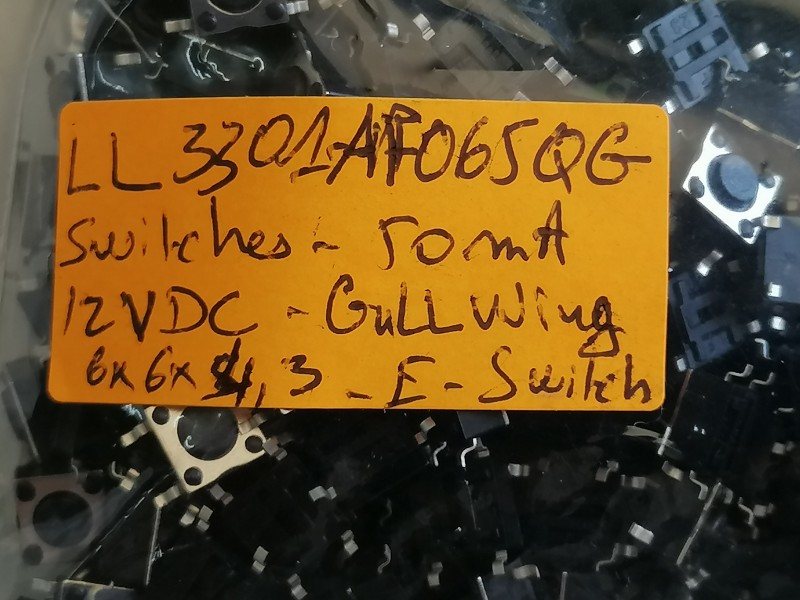 LL3301AF065QG
Switches - 50mA
12VDC - GullWing
6x6x4,3 - E-Switch